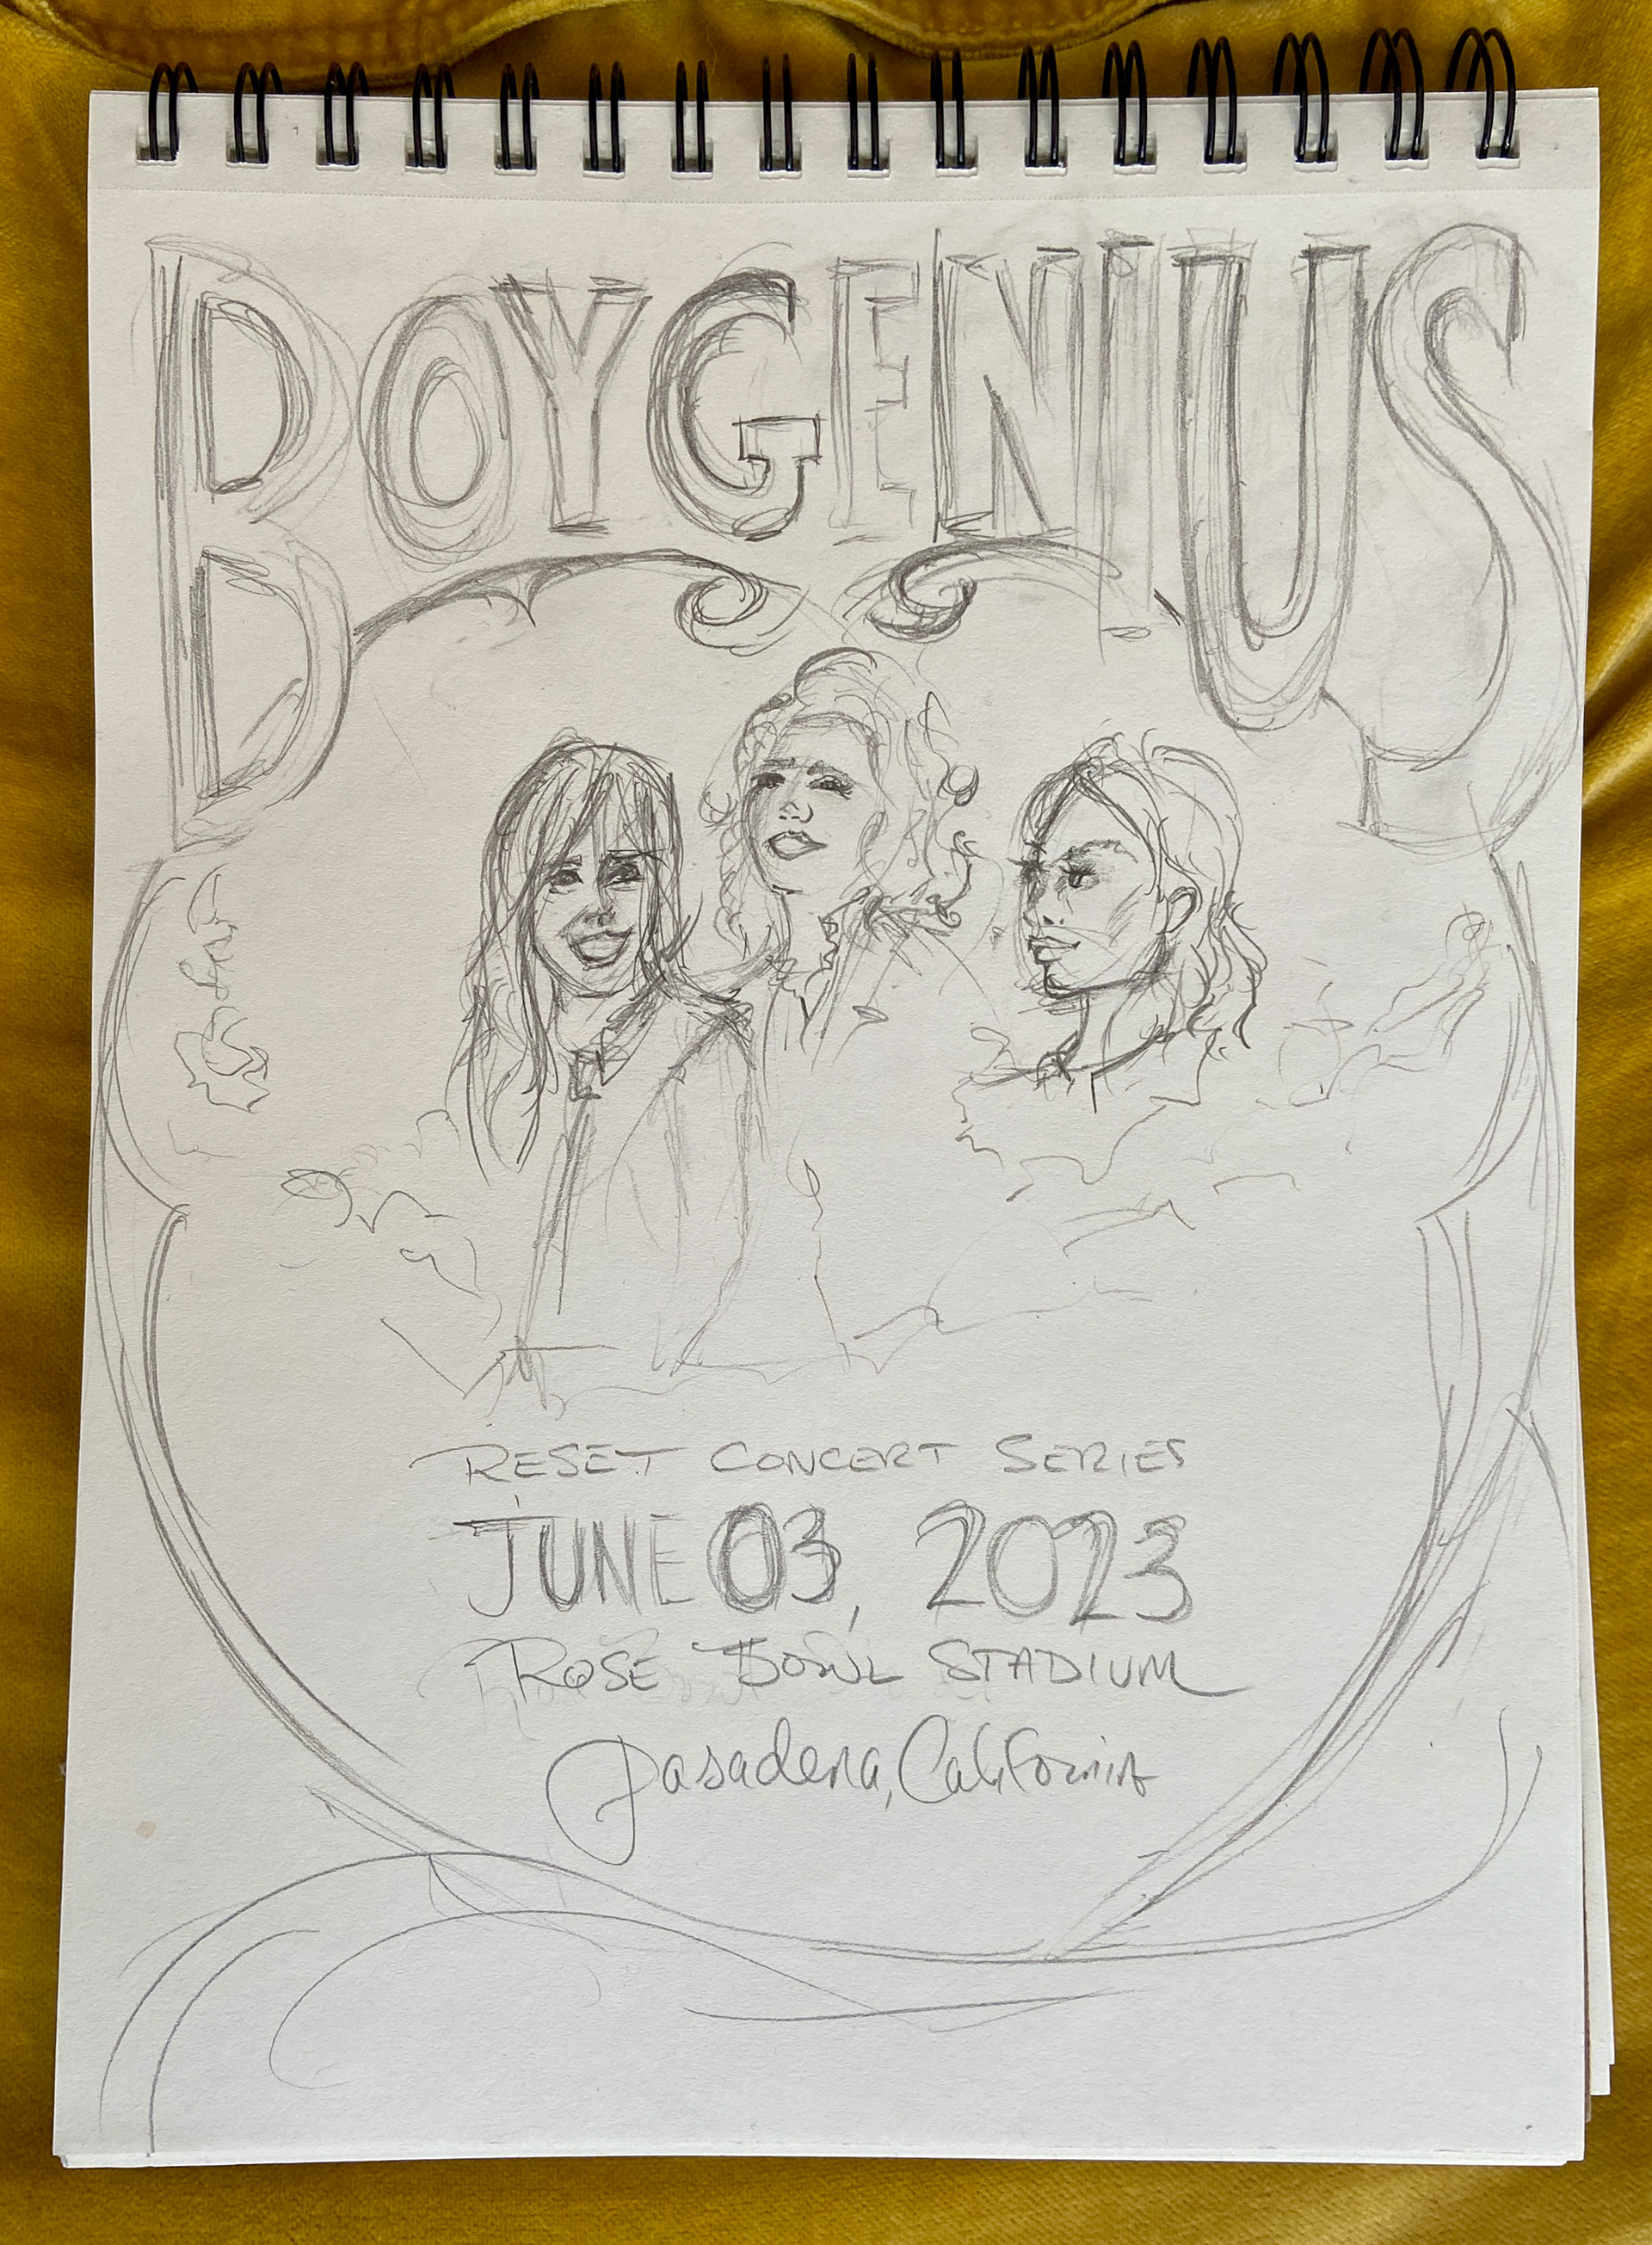 BOYGENIUS
RESET CONCERT SERIES
JUNE 03, 2023
ROSE BOWL STADIUM
Pasadena, California